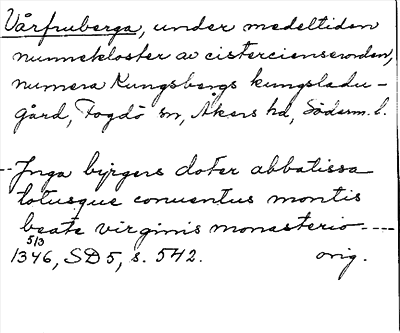 Vårfruberga, under medeltiden
nunnekloster av cistercienserorden,
numera Kungsbergs kungsladu-
gård, Fogdö sn, Åkers hd, Söderm. l.
--Inga byrgers doter abbatissa
totusque conuentus montis
beate virginis monasterio ----
5/3
1346, SD 5, s. 542. orig.